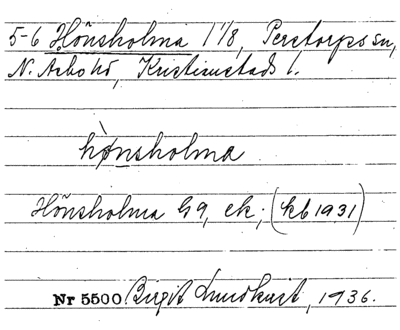 5-6 Hönsholma 1 1/8, Perstorps sn,
N. Åsbo hd, Kristianstads l.
hønsholma
Hönsholma G9, ek; (kb 1931)
Nr 5500 Birgit Lundkvist, 1936.